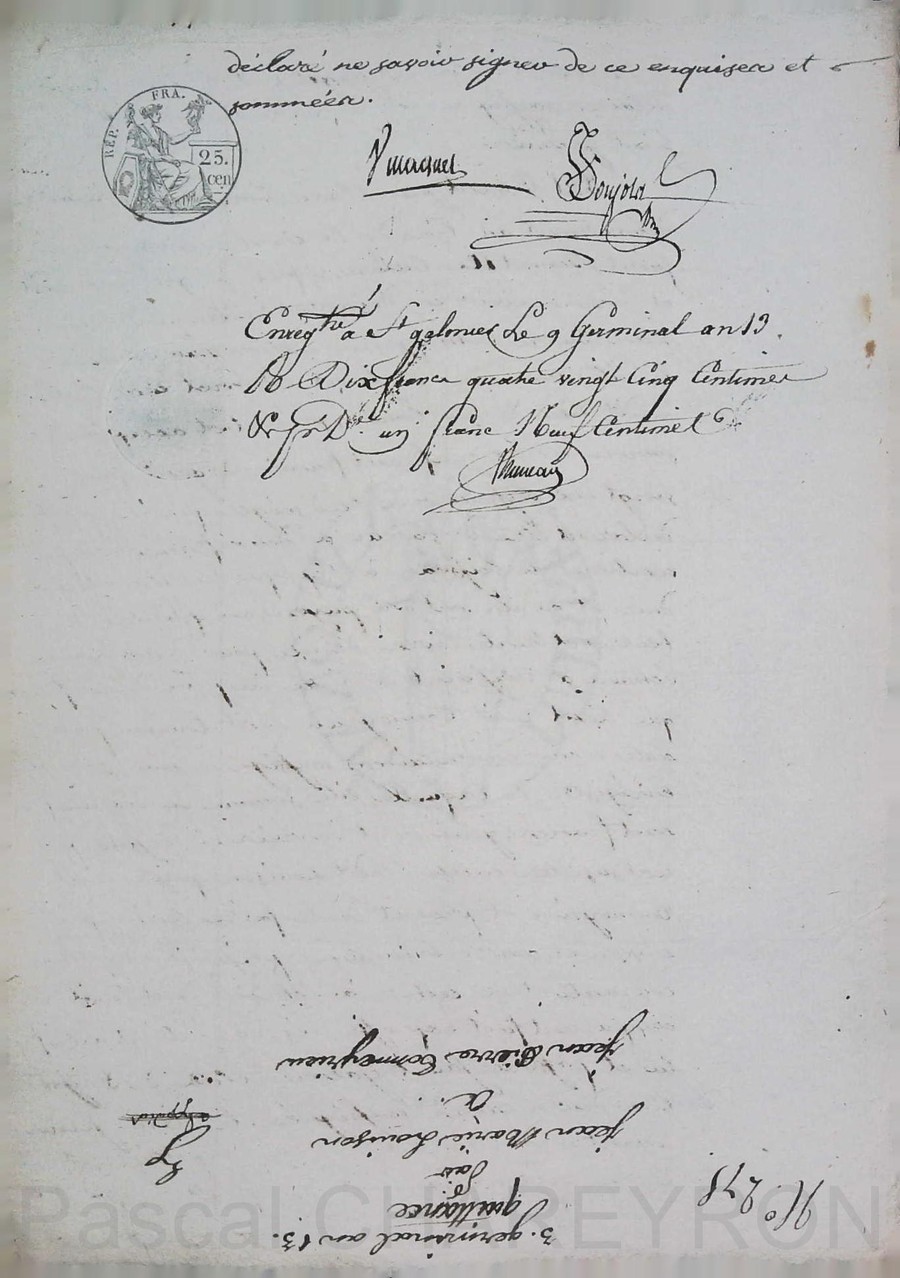 déclaré ne savoir signer de ce enquises et
sommées.
RÉP. FRA.
25.
cen
Enreg.tré à St galmier Le 9 Germinal an 13.
R Dix francs quatre vingt Cinq Centimes
un franc Neuf Centimes
N.o 278
3. germinal an 13.
quittance
par
jean Marie
a
jean Pierre
Pascal CHAREYRON